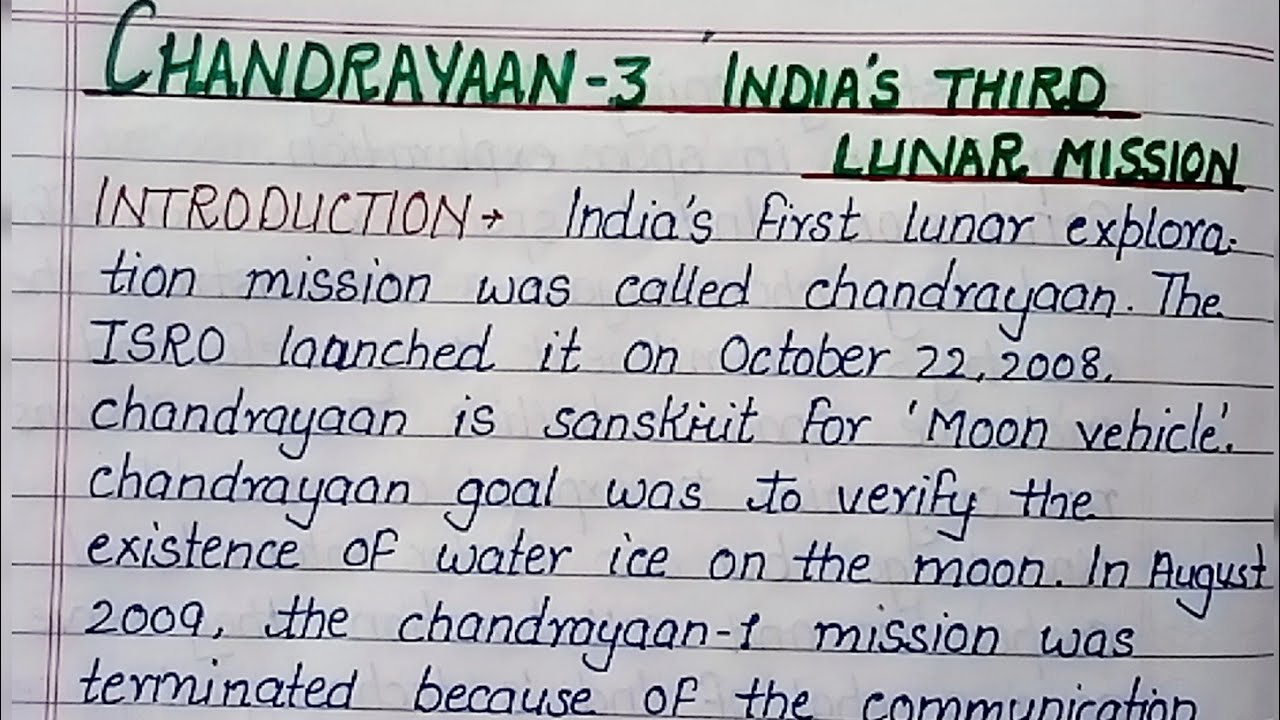 CHANDRAYAAN-3 INDIA'S THIRD
LUNAR MISSION
INTRODUCTION→ India's first lunar explora-
tion mission was called chandrayaan. The
ISRO launched it on October 22, 2008.
chandrayaan is sanskrit for 'Moon vehicle'.
chandrayaan goal was to verify the
existence of water ice on the moon. In August
2009, the chandrayaan-1 mission was
terminated because of the communication